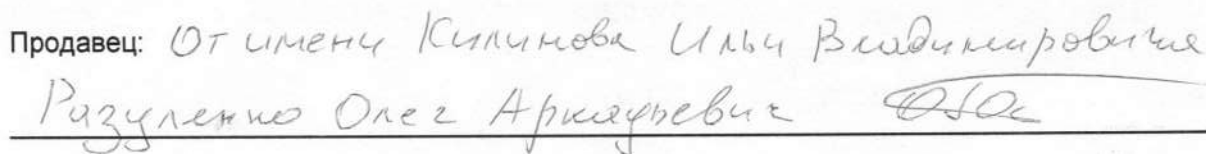 Продавец: От имени Килинова Ильи Владимировича
Разуленко Олег Аркадьевич